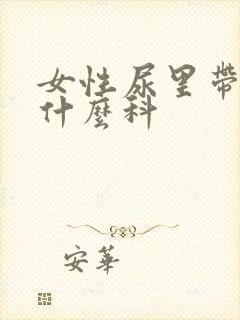 女性尿里带
什麽科
安華